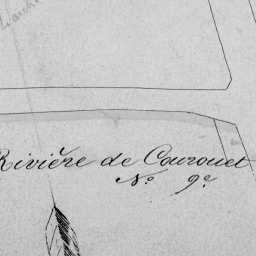 Rivière de Courouet
N.º 9.e